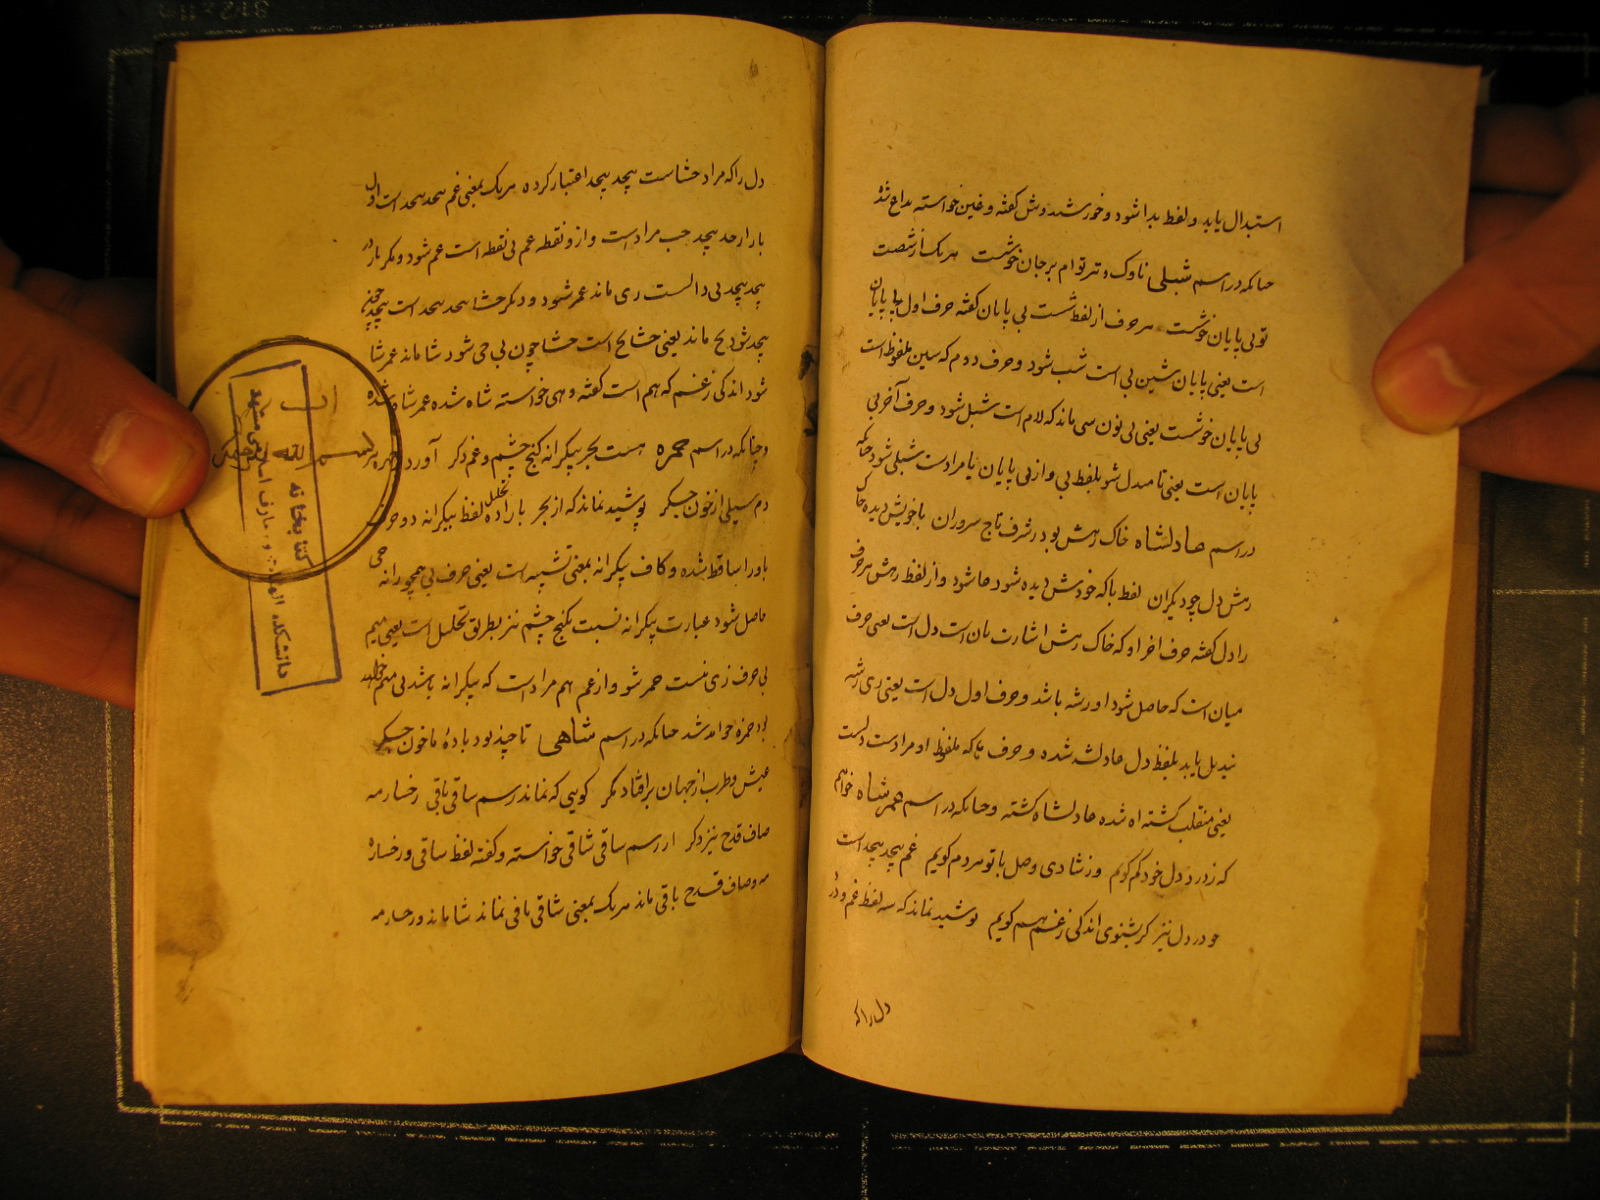 استبدال یابد و لفظ بدا شود و خورشید دش کفته و غین خواسته بداع شد
چنانکه در اسم شبلی ناوک تیر توام بر جان خوشست هر یک از شصت
تو بی پایان خوشست هر حرف از لفظ شست بی پایان کفته حرف اول بی پایان
است یعنی پایان شین بی است شب شود و حرف دوم که سین ملفوظ است
بی پایان خوشست یعنی بی نون سی ماند که لام است شبل شود و حرف آخر بی
پایان است یعنی تا مبدل شو بلفظ بی و از بی پایان یا مرادست شبلی شود چنانکه
در اسم عادلشاه خاک رهش بود شرف تاج سروران باخویش دیده خاک
رهش دل چو دیکران لفظ با که خودش دیده شود عا شود و از لفظ رهش هر حرف
را دل کفته حرف اخر او که خاک رهش اشارت بان است دل است یعنی حرف
میان است که حاصل شود او رشه باشد و حرف اول دل است یعنی ری رشه
تبدیل یابد بلفظ دل عادلشه شده و حرف ها که ملفوظ او مرادست دلست
یعنی منقلب کشته اه شده عادلشاه کشته و چنانکه در اسم عمرشاه خواهم
که ز درد دل خود کم کویم وز شادی وصل با تو مردم کویم غم بیحد بیحد است
و درد دل نیز کر بشنوی اندکی ز غم هم کویم پوشید نماند که سه لفظ غم و درد
دل را که
دل را که مراد حشاست بیحد بیحد اعتبار کرده هر یک بمعنی غم بیحد بیحد است و اول
بار از حد بیحد حب مراد است و از و نقطه غم بی نقطه است عم شود و مکر بار در
بیحد بیحد بی دالست ری ماند عمر شود و دیکر حشا بیحد بیحد است بیحد چون
بیحد شود یح ماند یعنی حشا یح است حشا چون بی حی شود شا ماند عمر شا
شود اندکی ز غم که هم است کفته و هی خواسته شاه شده عمر شاه شده
و چنانکه در اسم حمزه هست بحر بیکرانه کنج چشم و غم دکر آورد
دم سیلی از خون جکر پوشید نماند که از بحر بار اده تحلیل لفظ بیکرانه دو حرف
با و را ساقط شده و کاف بیکرانه بمعنی تشبیه است یعنی حرف بی همچو رانه حی
حاصل شود عبارت بیکرانه نسبت بکنج چشم نیز بطریق تحلیل است یعنی میم
بی حرف زی نیست حمز شو و از غم هم مراد است که بیکرانه باشد بی میم خواهد
بود حمزه خواهد شد چنانکه در اسم شاهی تا چند بود باده ما خون جکر
عیش و طرب از جهان برافتاد مکر کویی که نماند رسم ساقی باقی رخسار مه
صاف قدح نیز دکر از رسم ساقی شاقی خواسته و کفته لفظ ساقی و رخساره
مه و صاف قدح باقی ماند هر یک بمعنی شاقی باقی نماند شا ماند و رخسار مه
کتابخانه
دانشکده الهیات و معارف اسلامی مشهد